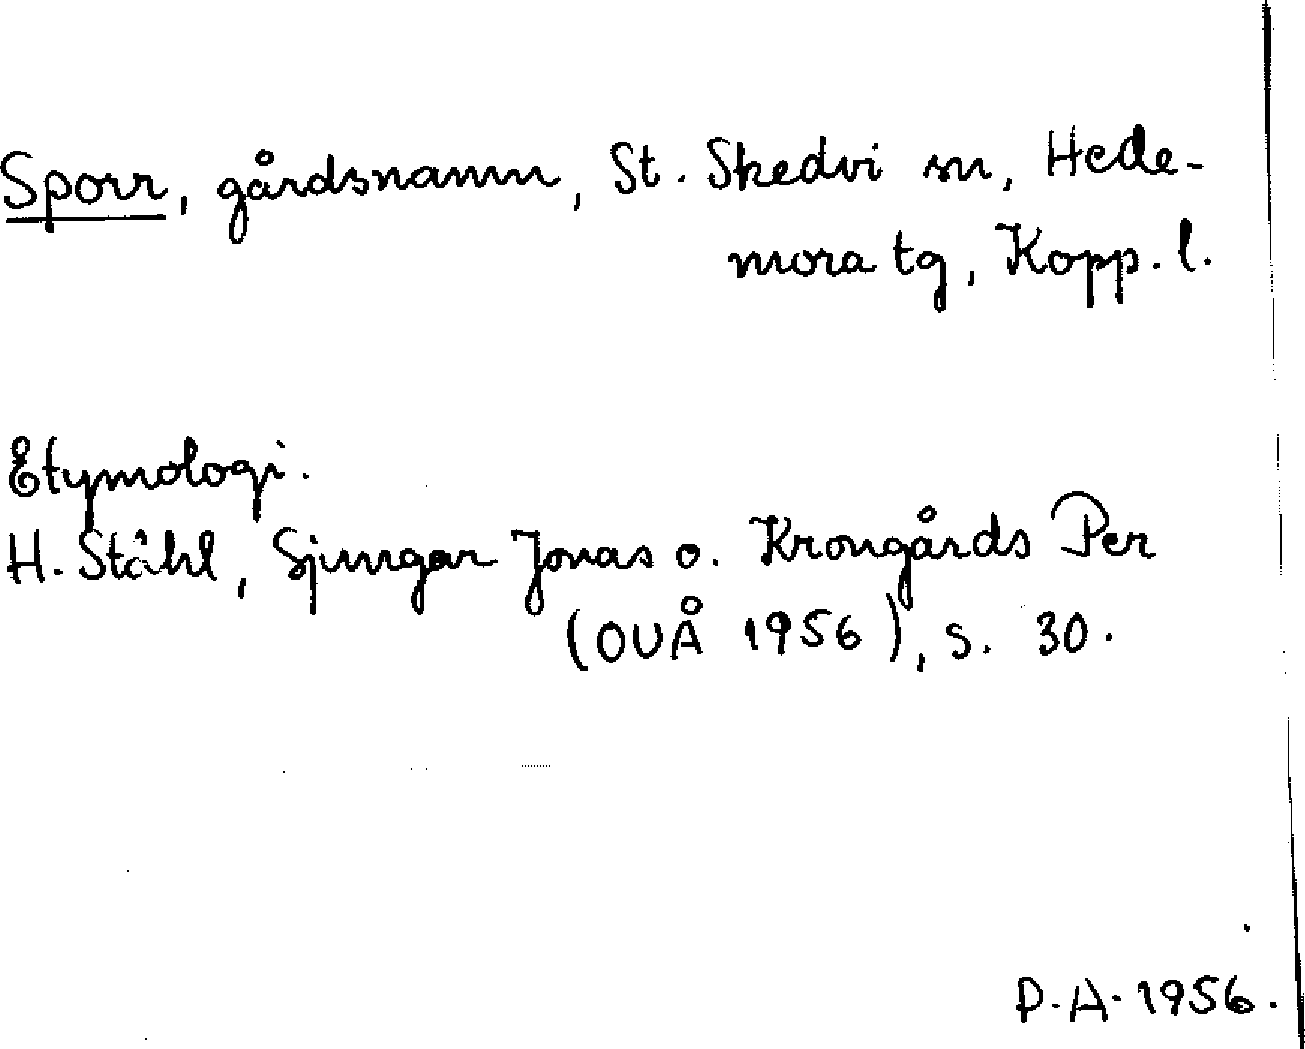 Sporr, gårdsnamn, St. Skedvi sn, Hede-
mora tg, Kopp. l.
Etymologi.
H. Ståhl, Sjungar Jonas o. Krongårds Per
(OUÅ 1956), s. 30.
D. A. 1956.